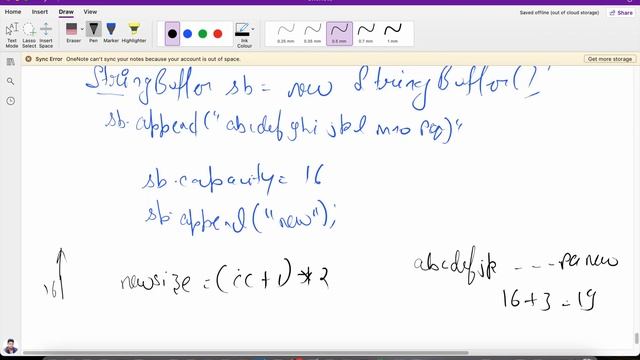 Home Insert Draw View
Saved offline (out of cloud storage)
Text Mode Lasso Select Insert Space Eraser Pen Marker Highlighter 0.25 mm 0.35 mm 0.5 mm 0.7 mm 1 mm Ink Colour
Sync Error OneNote can't sync your notes because your account is out of space. Get more storage
StringBuffer sb = new StringBuffer()
sb.append("abcdefghi jkl mno pq)"
sb.capacity = 16
sb.append("new");
abcdefjk --- pqnew
16 newsize = (ic+1) * 2
16+3 = 19